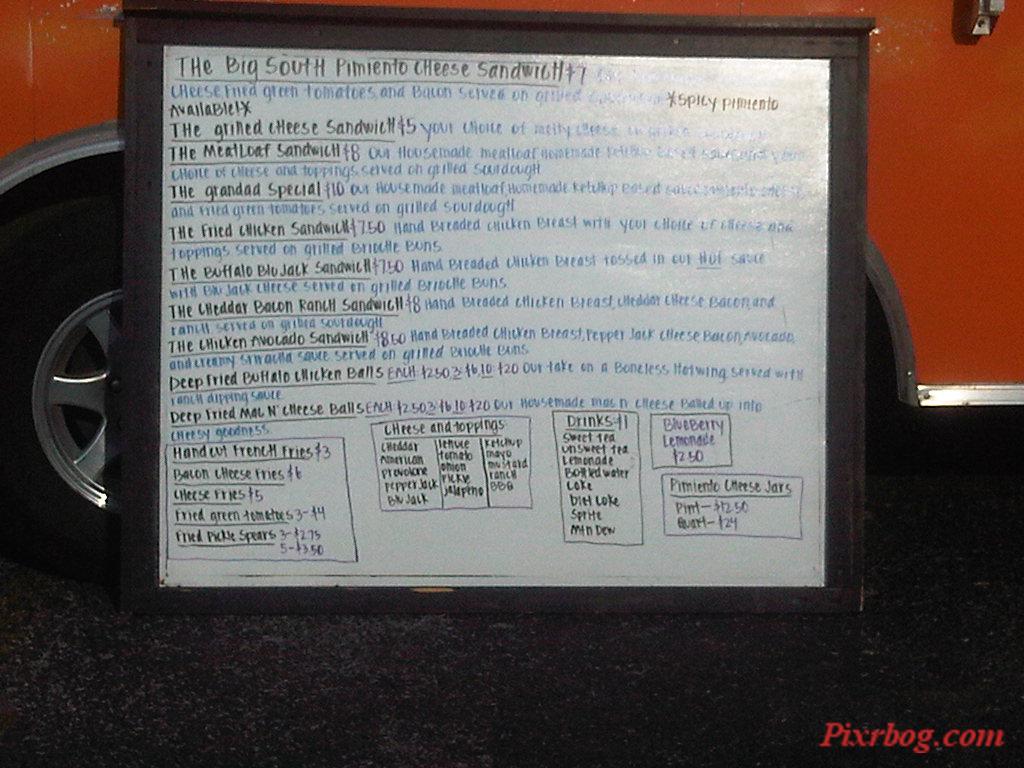 THE Big South Pimiento Cheese Sandwich $7
Cheese, Fried green tomatoes, and Bacon served on grilled *Spicy Pimiento
Available!*
THE grilled Cheese Sandwich $5 your choice of melty cheese on grilled
THE Meatloaf Sandwich $8 Our Housemade meatloaf, Homemade Ketchup Based sauce and your
choice of cheese and toppings served on grilled sourdough
THE grandad Special $10 Our Housemade meatloaf, Homemade Ketchup Based sauce, pimiento cheese
and Fried green tomatoes served on grilled sourdough
THE Fried Chicken Sandwich $7.50 Hand Breaded Chicken Breast with your choice of cheese and
toppings served on grilled Brioche Buns
THE Buffalo Blu Jack Sandwich $7.50 Hand Breaded Chicken Breast tossed in our Hot sauce
with Blu Jack cheese served on grilled Brioche Buns
THE Cheddar Bacon Ranch Sandwich $8 Hand Breaded Chicken Breast, Cheddar Cheese, Bacon, and
ranch served on grilled sourdough
THE Chicken Avocado Sandwich $8.50 Hand Breaded Chicken Breast, Pepper Jack Cheese, Bacon, Avocado,
and creamy sriracha sauce served on grilled Brioche Buns
Deep Fried Buffalo Chicken Balls EACH $2.50 3-$6 10-$20 Our take on a Boneless Hotwing served with
ranch dipping sauce
Deep Fried Mac N' Cheese Balls EACH $2.50 3-$6 10-$20 Our Housemade mac n cheese Balled up into
cheesy goodness
Handcut French Fries $3
Bacon Cheese Fries $6
Cheese Fries $5
Fried green tomatoes 3-$4
Fried Pickle Spears 3-$2.75
5-$3.50
Cheese and toppings
Cheddar
American
Provolone
PepperJack
Blu Jack
lettuce
tomato
onion
Pickle
jalapeno
Ketchup
mayo
mustard
ranch
BBQ
Drinks $1
Sweet tea
Unsweet tea
Lemonade
Bottled water
Coke
Diet Coke
Sprite
Mtn Dew
Blueberry
Lemonade
$2.50
Pimiento Cheese Jars
Pint-$12.50
Quart-$24
Pixrbog.com